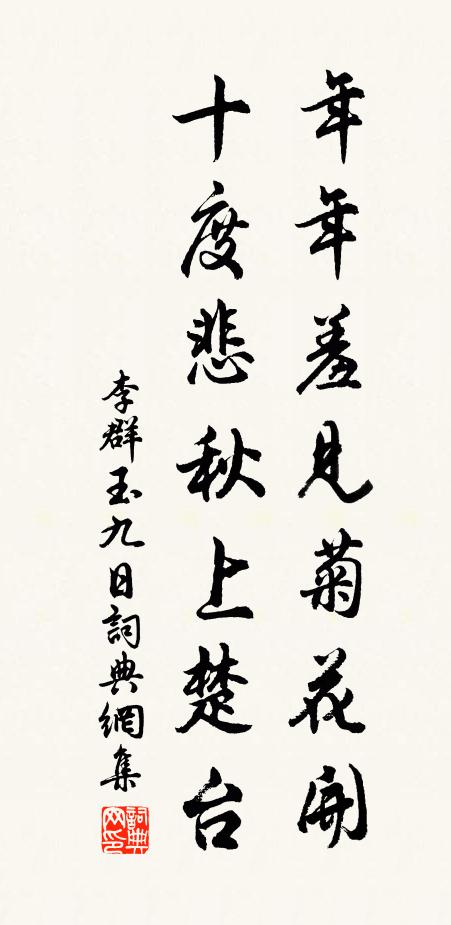 年年羞見菊花開
十度悲秋上楚台
李群玉九日詞典網集
詞典网印